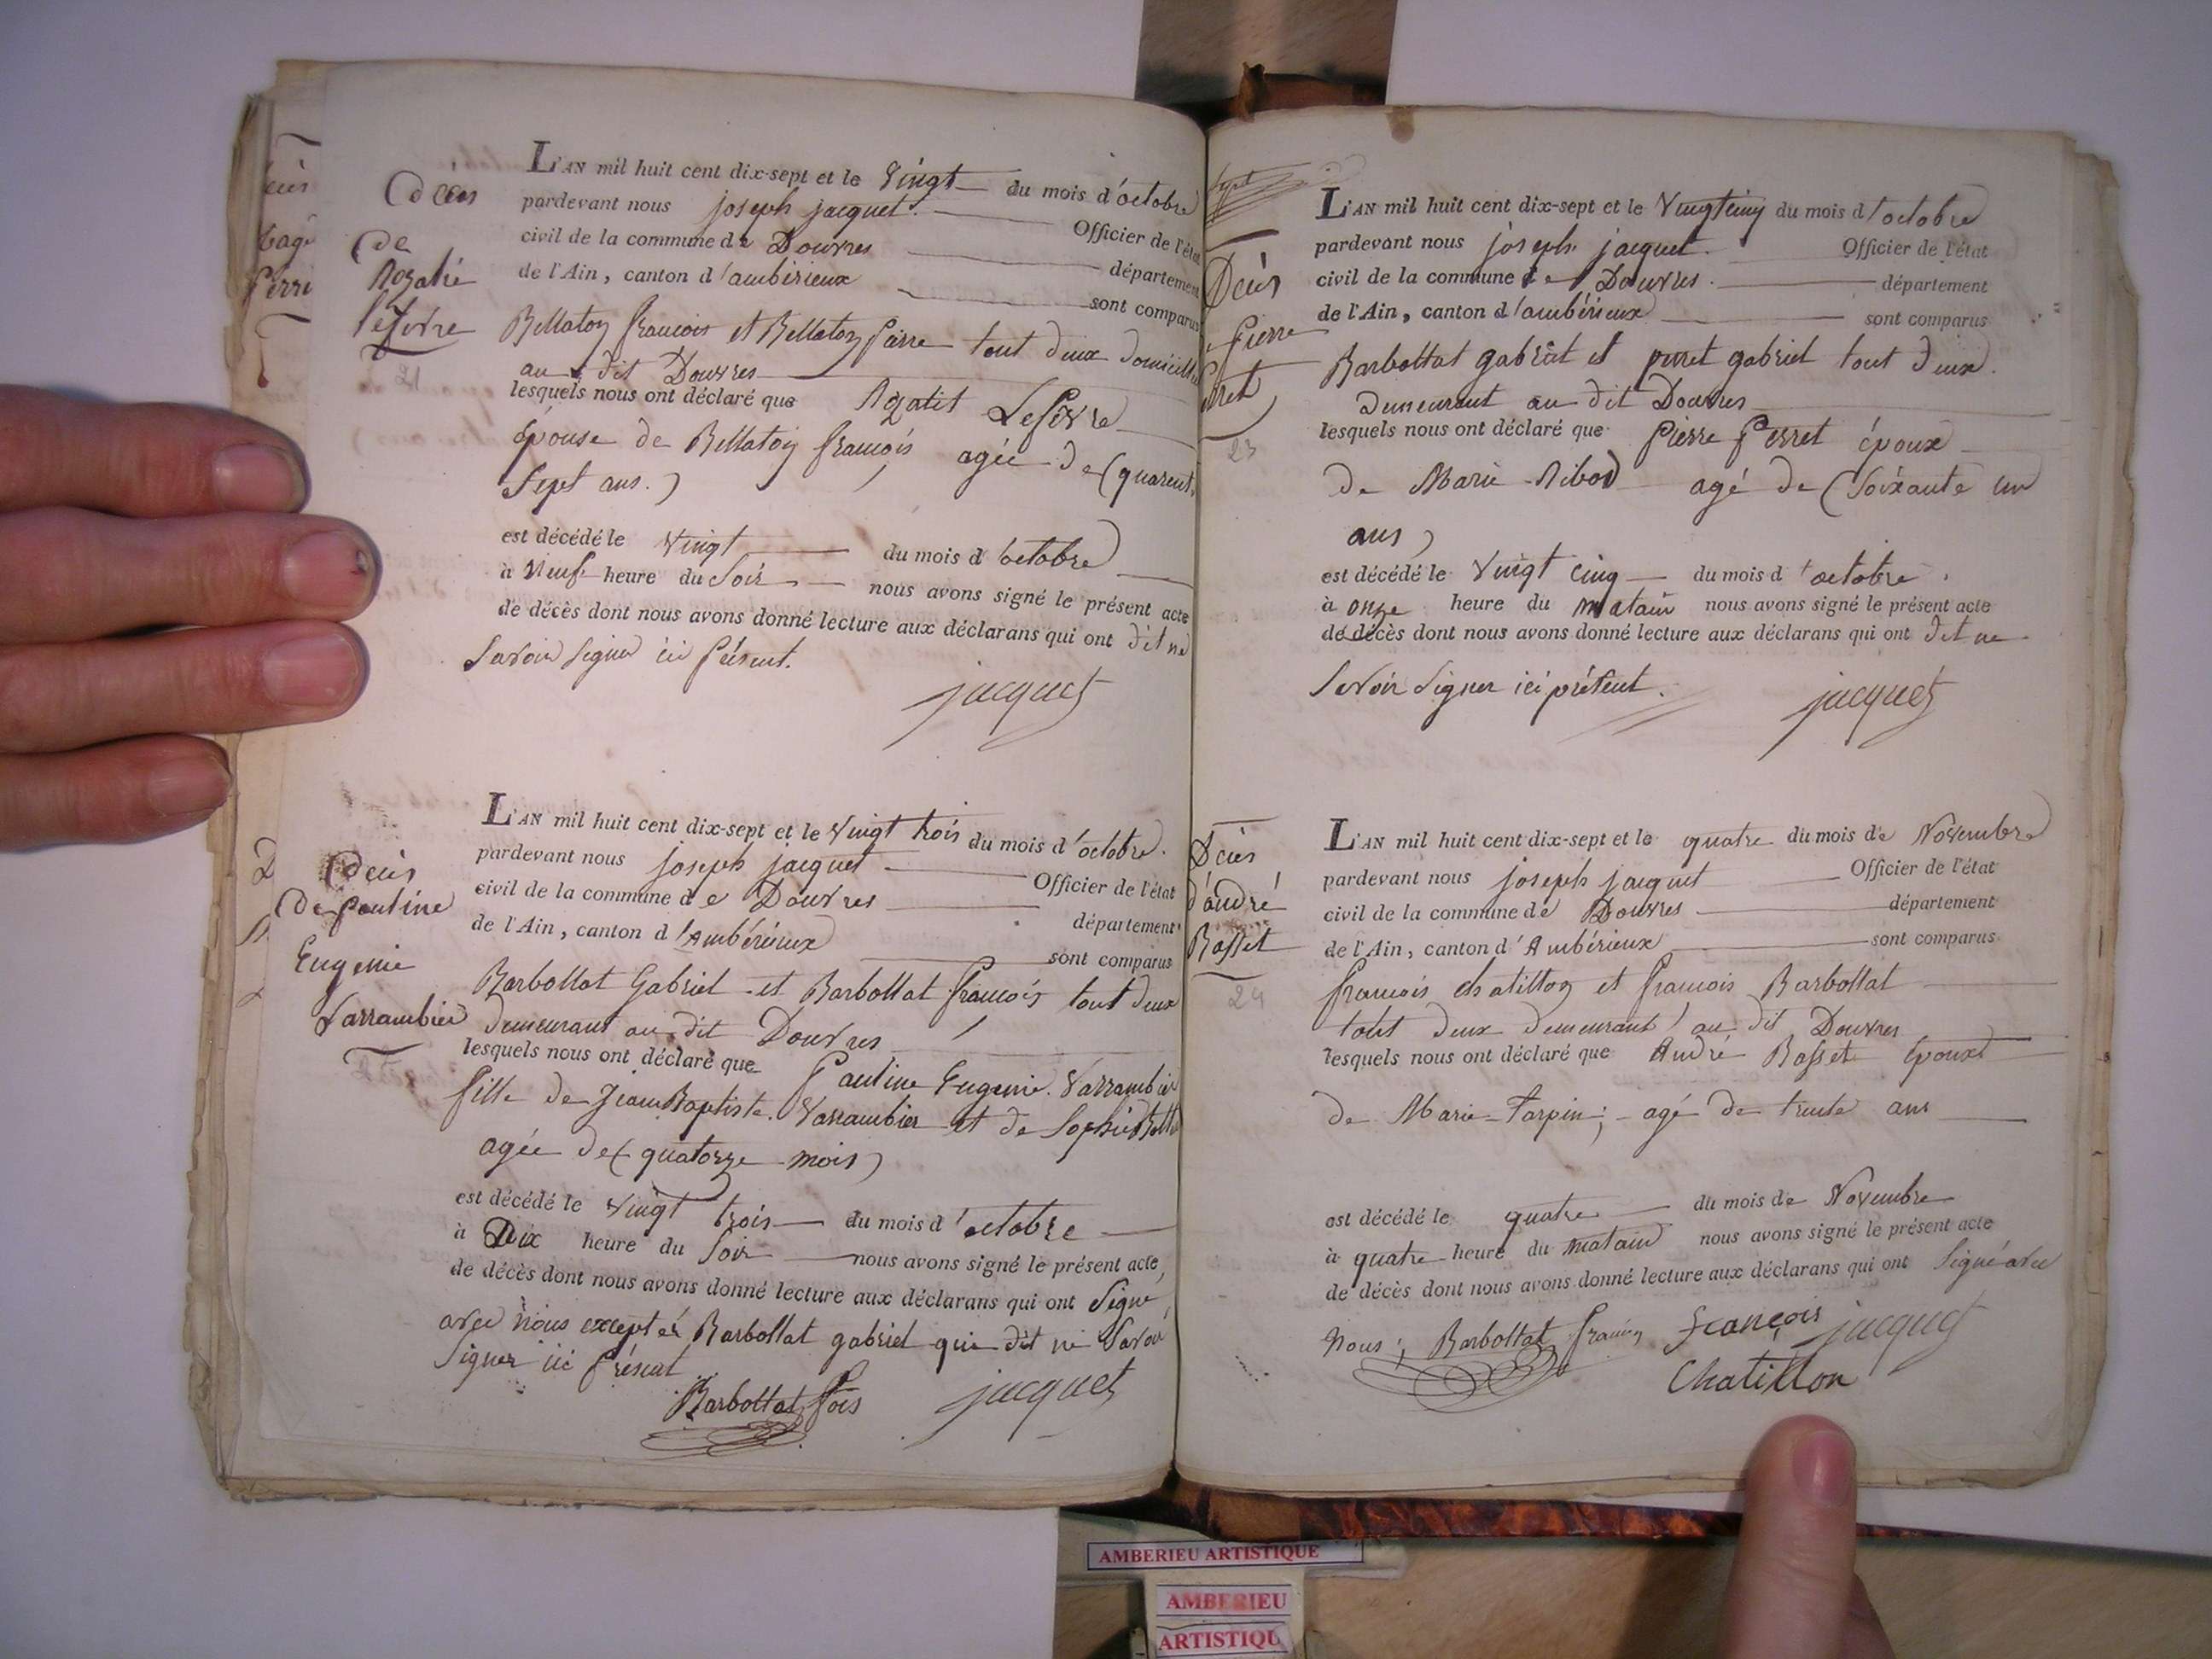 Décès
de
Rozalie
Lefevre
21
L'AN mil huit cent dix-sept et le Vingt du mois d'octobre
pardevant nous joseph jacquet. Officier de l'état
civil de la commune de Douvres département
de l'Ain, canton d'ambérieux sont comparus
Bellaton francois et Bellaton pierre tout deux domicillié
au dit Douvres
lesquels nous ont déclaré que Rozalie Lefevre
épouse de Bellaton françois agée de (quarente
Sept ans.)
est décédé le vingt du mois d'octobre
à Neuf heure du Soir nous avons signé le présent acte
de décès dont nous avons donné lecture aux déclarans qui ont dit ne
Savoir Signer ici présent.
jacquet
Décès
de pauline
Eugenie
Varrambier
L'AN mil huit cent dix-sept et le Vingt trois du mois d'octobre.
pardevant nous joseph jacquet Officier de l'état
civil de la commune de Douvres département
de l'Ain, canton d'Ambérieux sont comparus
Barbollat Gabriel et Barbollat françois tout deux
demeurant au dit Douvres
lesquels nous ont déclaré que Pauline Eugenie Varrambier
fille de Jean Baptiste Varrambier et de Sophie
agée de (quatorze mois)
est décédé le vingt trois du mois d'octobre
à Dix heure du Soir nous avons signé le présent acte
de décès dont nous avons donné lecture aux déclarans qui ont Signé
avec nous excepter Barbollat gabriel qui dit ne Savoir
Signer ici présent
Barbollat fois jacquet
Décès
Pierre
Perret
23
L'AN mil huit cent dix-sept et le Vingtcinq du mois d'octobre
pardevant nous joseph jacquet. Officier de l'état
civil de la commune de Douvres. département
de l'Ain, canton d'ambérieux sont comparus
Barbollat gabriel et perret gabriel tout deux.
demeurant au dit Douvres
lesquels nous ont déclaré que Pierre Perret époux
de Marie Ribod agé de (Soixante un
ans)
est décédé le Vingt cinq du mois d'octobre.
à onze heure du matain nous avons signé le présent acte
de décès dont nous avons donné lecture aux déclarans qui ont dit ne
Savoir Signer ici présent.
jacquet
Décès
d'andré
Basset
24
L'AN mil huit cent dix-sept et le quatre du mois de Novembre
pardevant nous joseph jacquet Officier de l'état
civil de la commune de Douvres département
de l'Ain, canton d'Ambérieux sont comparus
francois chatillon et francois Barbollat
tout deux demeurant au dit Douvres
lesquels nous ont déclaré que André Basset époux
de Marie Tarpin; agé de trente ans
est décédé le quatre du mois de Novembre
à quatre heure du matain nous avons signé le présent acte
de décès dont nous avons donné lecture aux déclarans qui ont Signé avec
Nous; Barbollat françois François jacquet
Chatillon
AMBERIEU ARTISTIQUE
AMBERIEU
ARTISTIQU